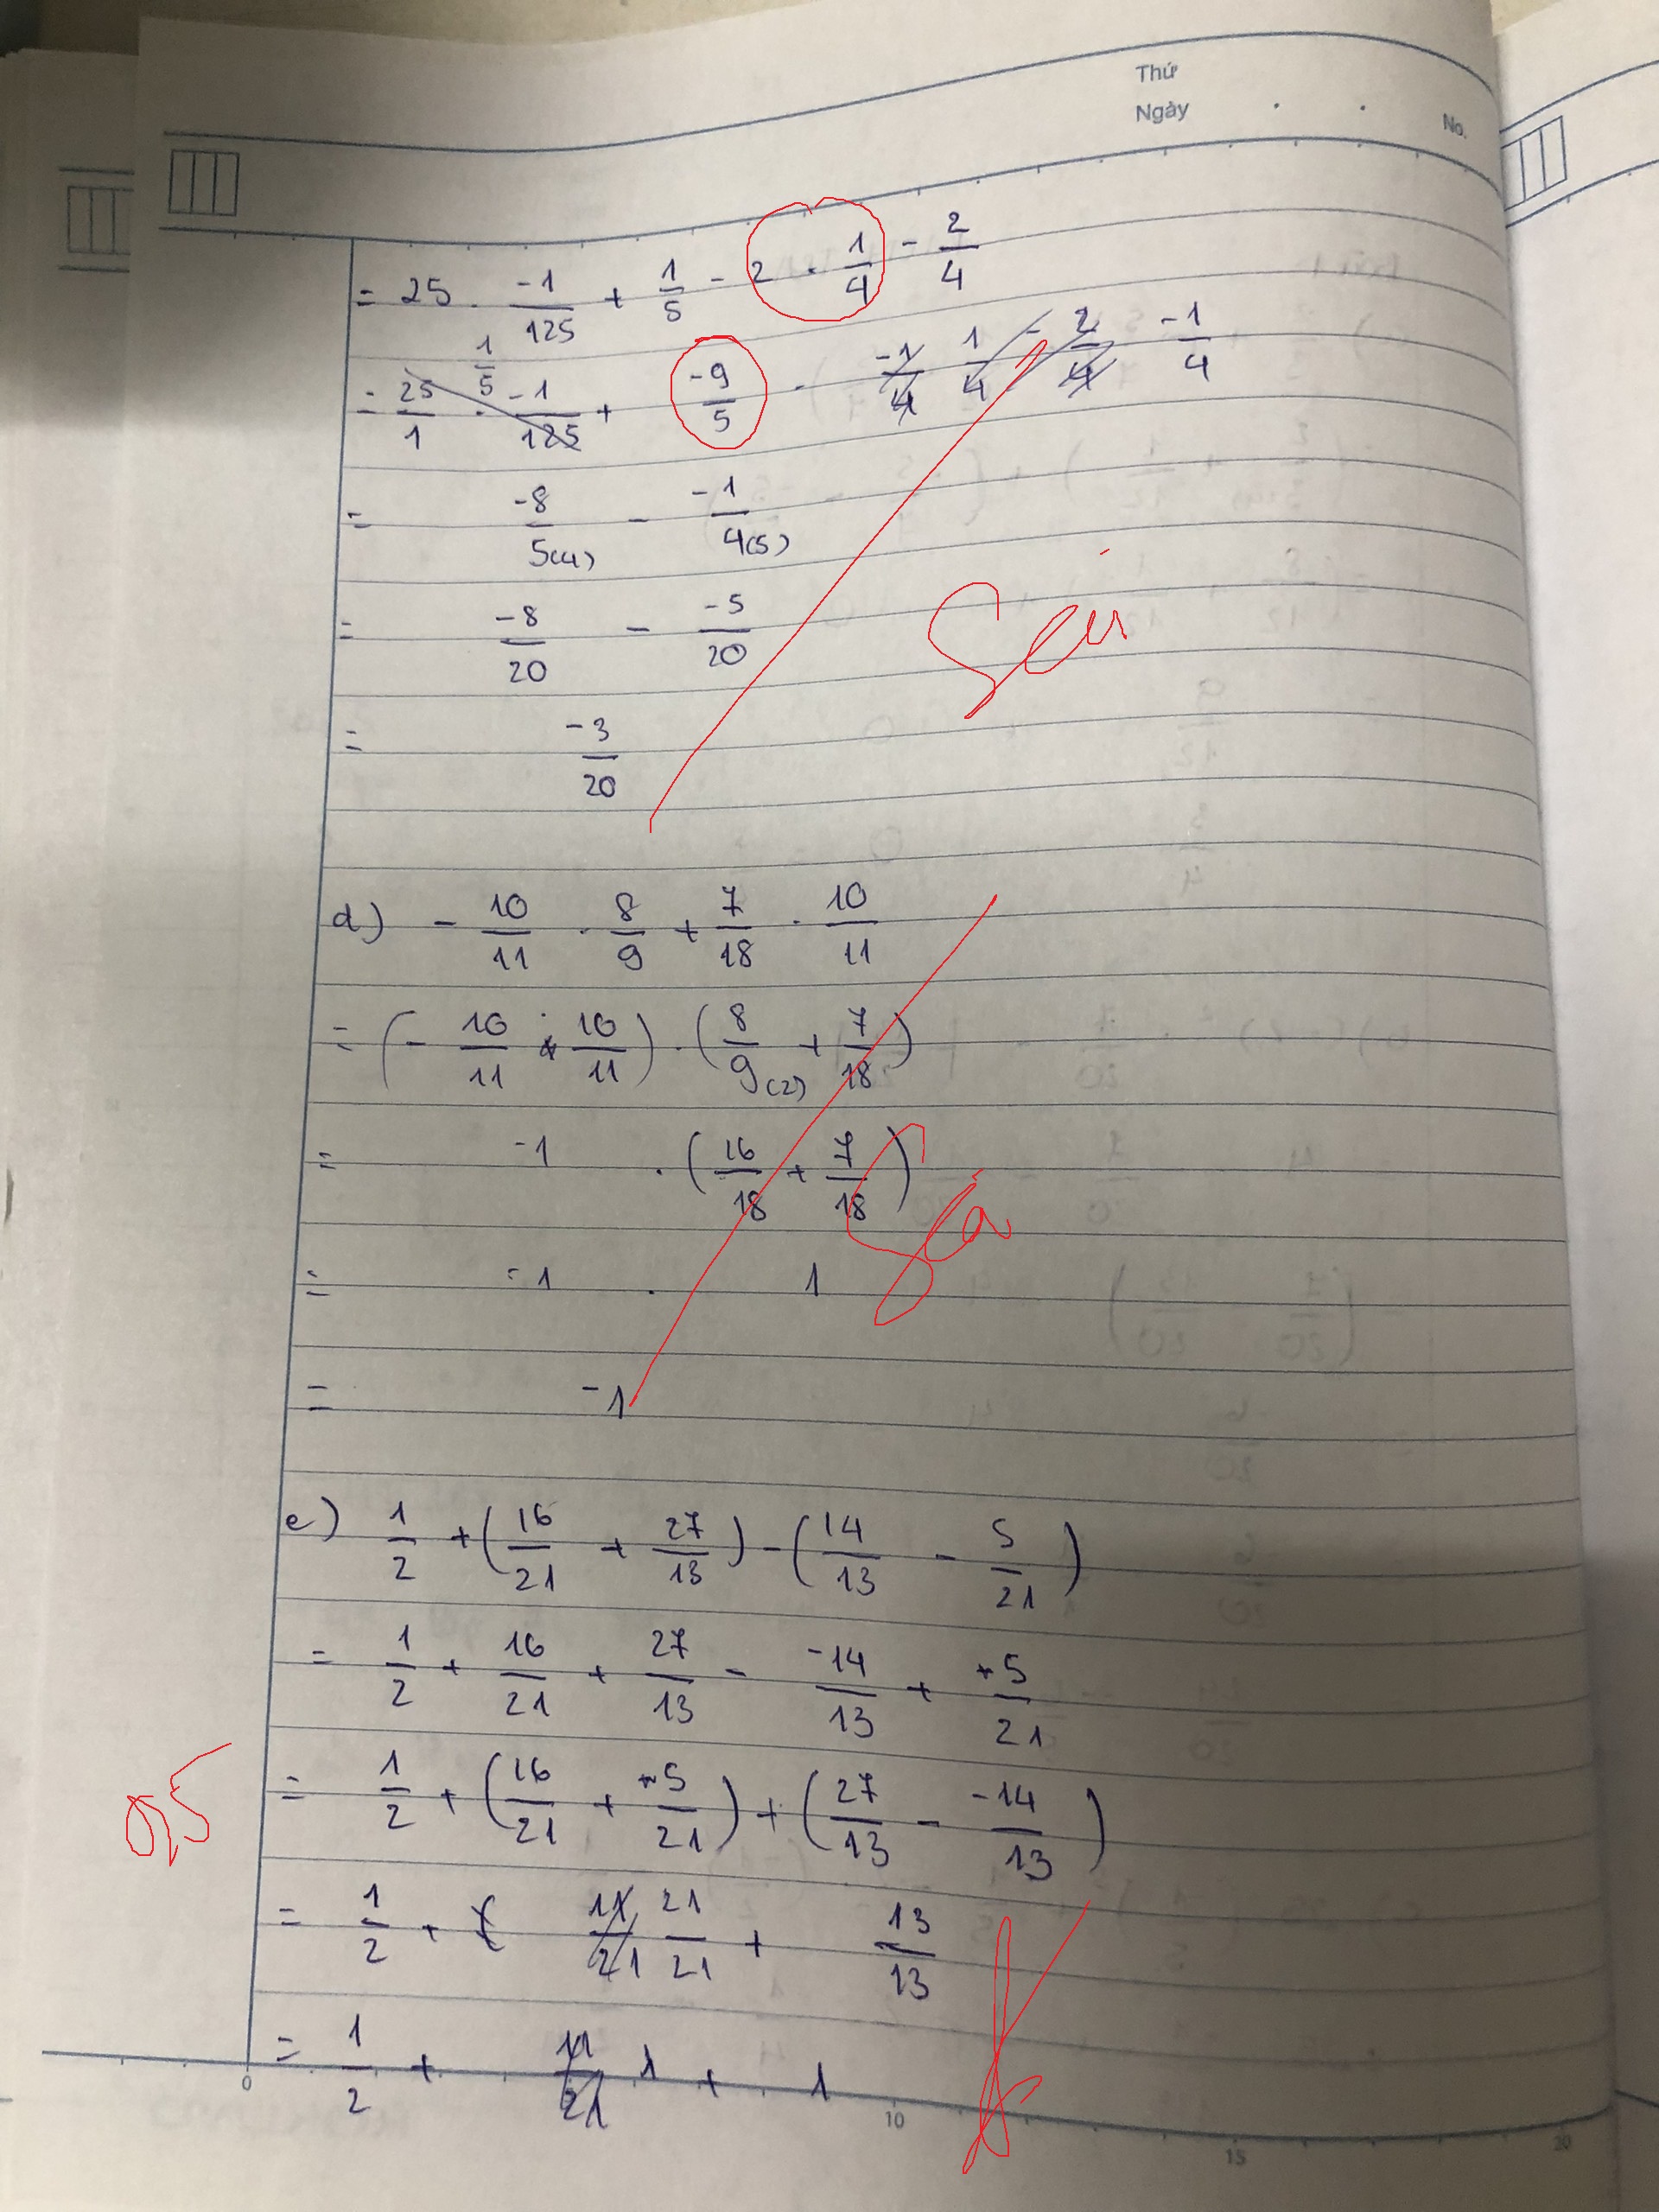 Thứ
Ngày . . No.
= 25 . -1/125 + 1/5 - 2 . 1/4 - 2/4
1/5
= 25/1 . -1/125 + -9/5 - -1/4 1/4 - 2/4 -1/4
= -8/5(4) - -1/4(5)
= -8/20 - -5/20
Sai
= -3/20
d) - 10/11 . 8/9 + 7/18 . 10/11
= (- 10/11 : 10/11) . (8/9(2) + 7/18)
= -1 . (16/18 + 7/18)
Sai
= -1 . 1
= -1
e) 1/2 + (16/21 + 27/13) - (14/13 - 5/21)
= 1/2 + 16/21 + 27/13 - -14/13 + +5/21
0,5
= 1/2 + (16/21 + +5/21) + (27/13 - -14/13)
= 1/2 + ( 11/21 21/21 + 13/13
= 1/2 + 11/21 1 + 1
0 10 15 20